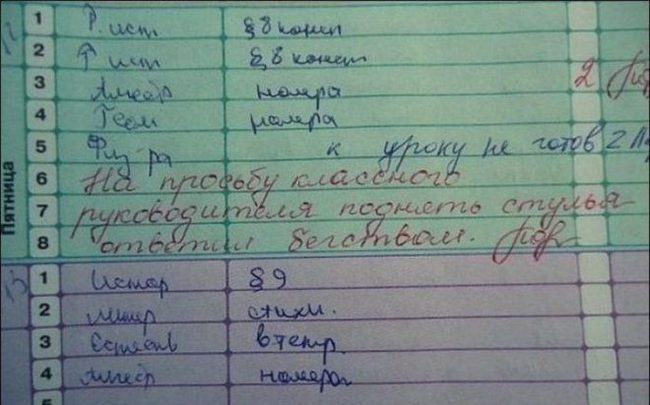 1 Р. ист § 8 консп
2 Р ист § 8 консп
3 Алгебр номра 2
4 Геом номра
5 Физ-ра к уроку не готов 2
6 На просьбу классного
7 руководителя поднять стулья
8 ответил бегством.
Пятница
1 Истор § 9
2 Литер стихи.
3 Естеств в тетр.
4 Алгебр номера